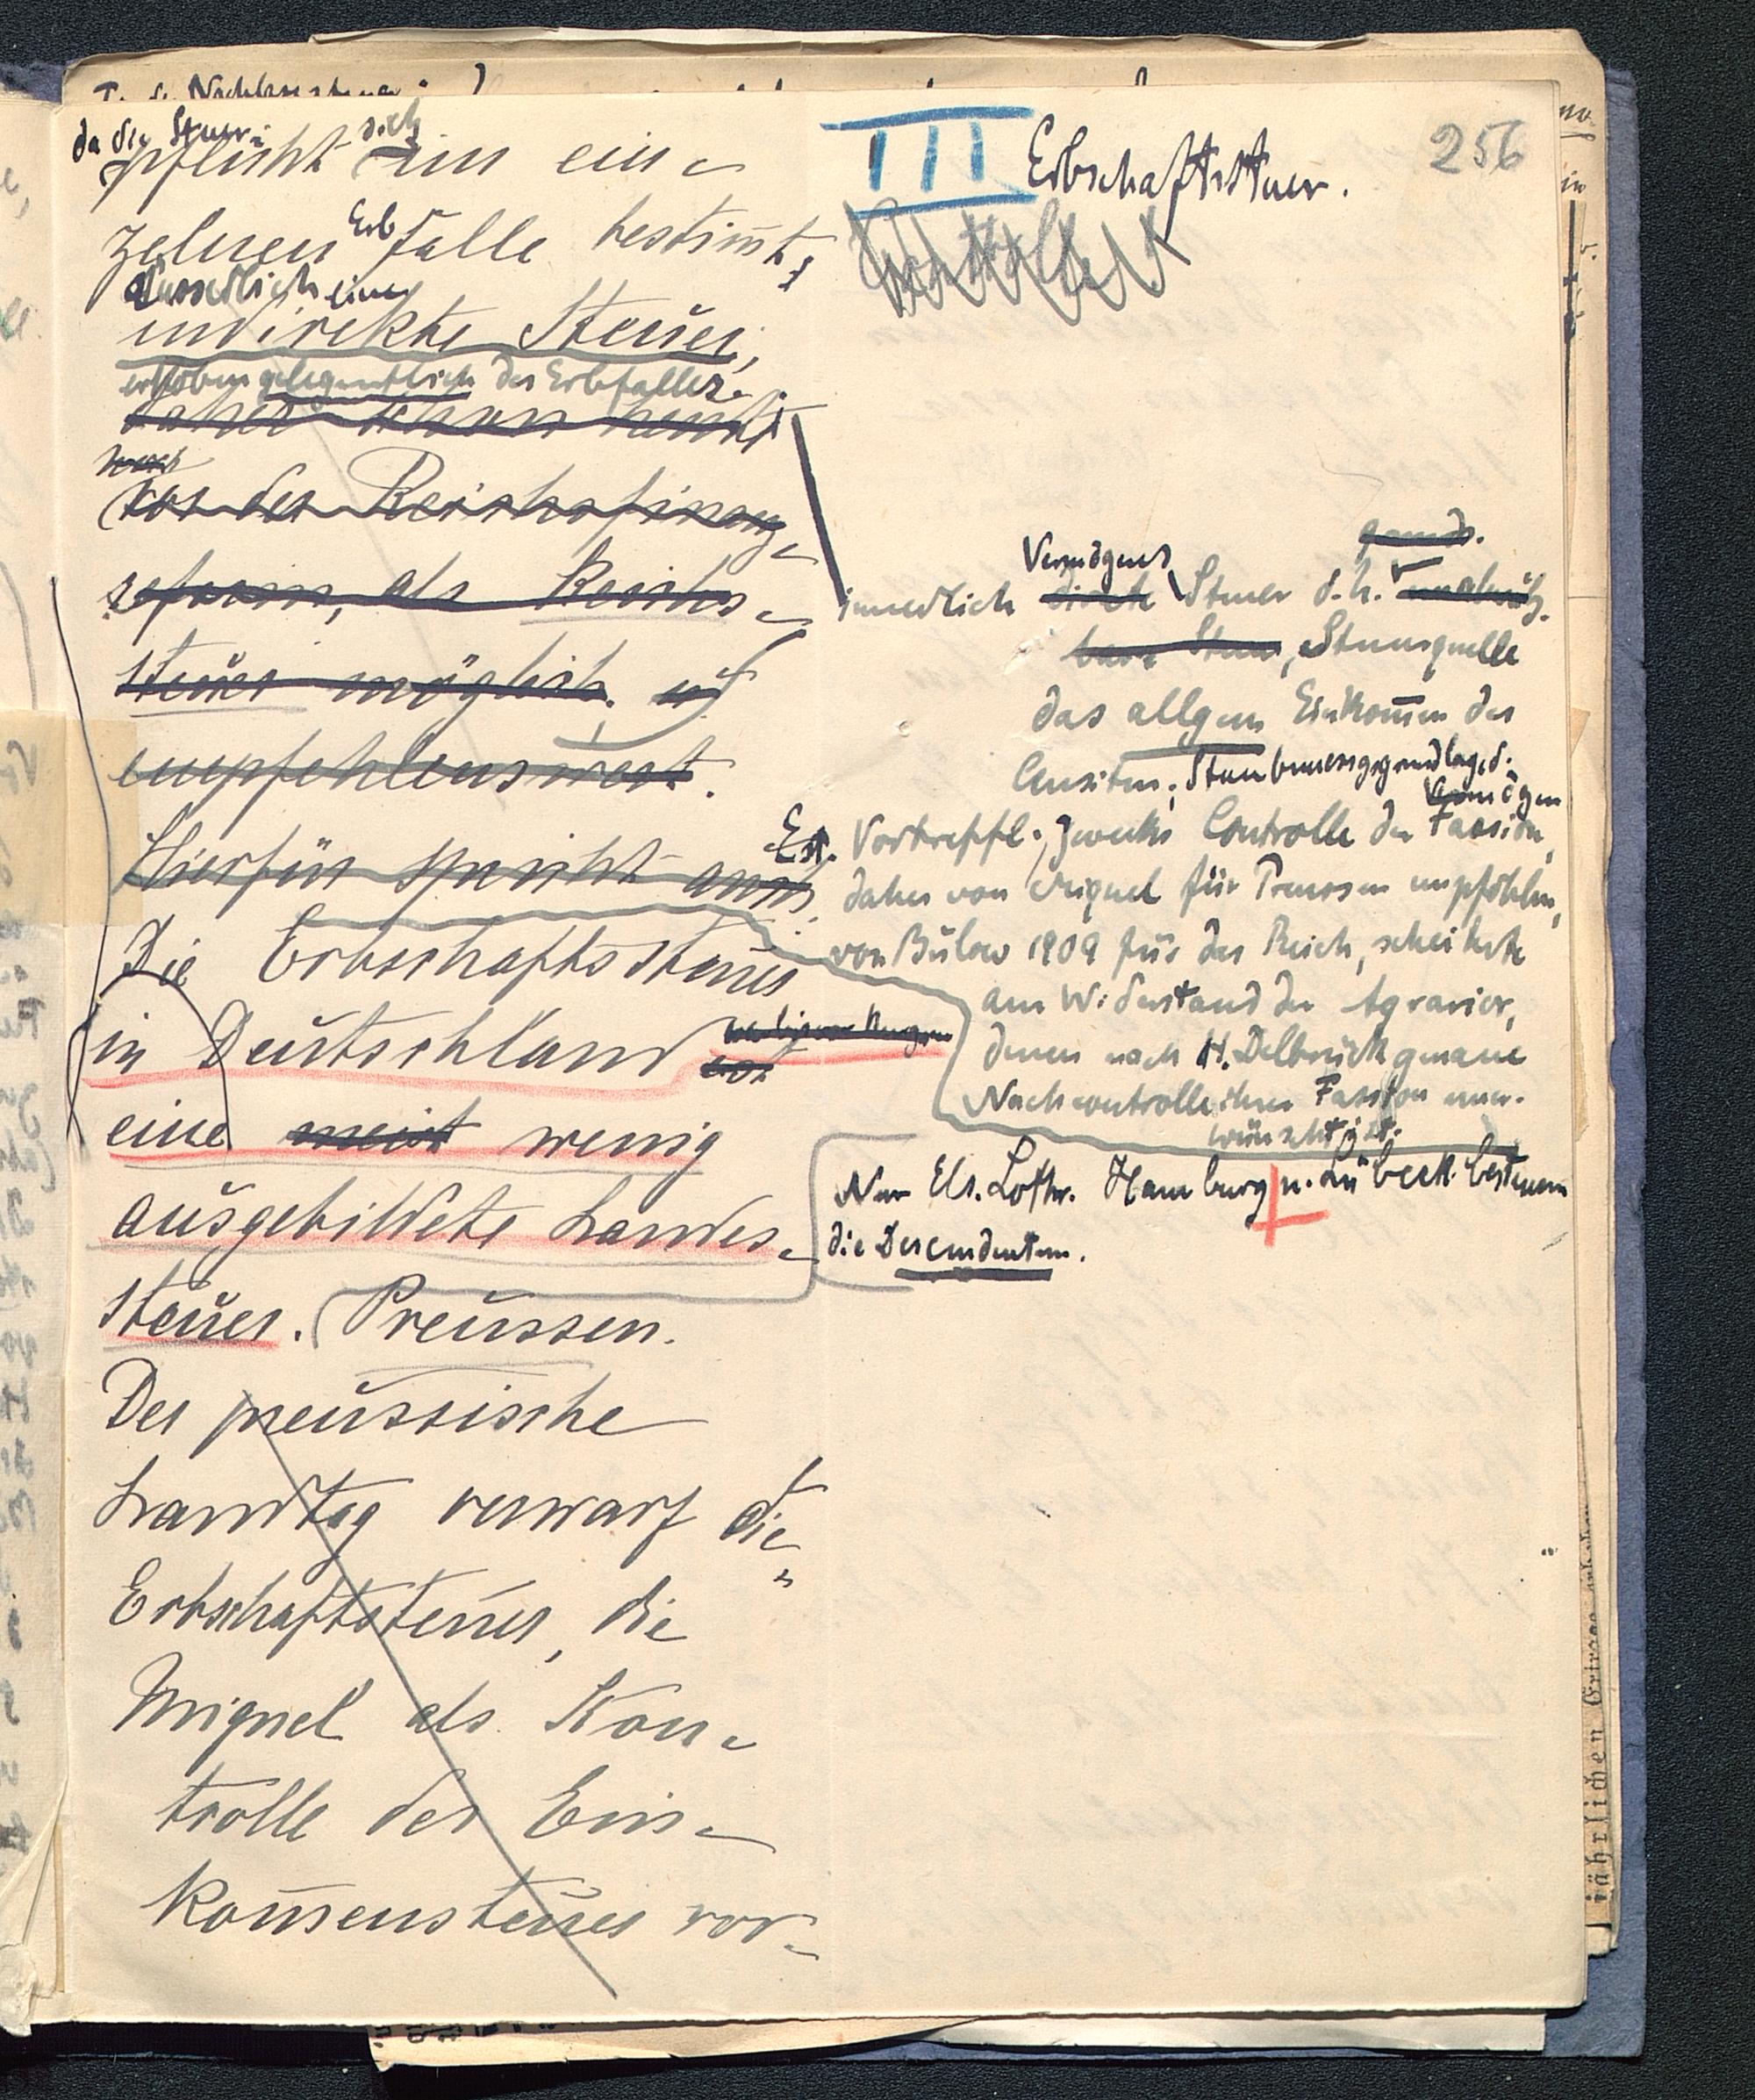 256
III Erbschaftssteuer.
da die Steuer-
pflicht sich im ein-
zelnen Erbfalle bestimmt;
äusserlich eine
indirekte Steuer,
erhoben gelegentlich des Erbfalles.
daher schon
vor der Reichsfinanz-
reform, als Reichs-
steuer möglich, und
empfehlenswert.
Hierfür spricht auch
Die Erbschaftssteuer
in Deutschland
ist
eine meist wenig
ausgebildete Landes-
steuer. Preussen.
Der preussische
Landtag verwarf die
Erbschaftssteuer, die
Miquel als Kon-
trolle der Ein-
kom̅ensteuer vor-
innerlich direkte Vermögens Steuer d.h.
bare Steuer, Steuerquelle
das allgem Einkom̅en des
Censiten; Steuerbemessungsgrundlage d.
Vermögen
Est. Vortreffl. zwecks Controlle der Fassion,
daher von Miquel für Preussen empfohlen,
von Bülow 1909 für das Reich, scheiterte
am Widerstand der Agrarier,
denen nach H. Delbrück genaue
Nachcontrolle ihrer Fassion uner-
wünscht ist.
Nur Els. Lothr. Hamburg u. Lübeck besteuern
die Descendenten.
jährlichen Ertrage